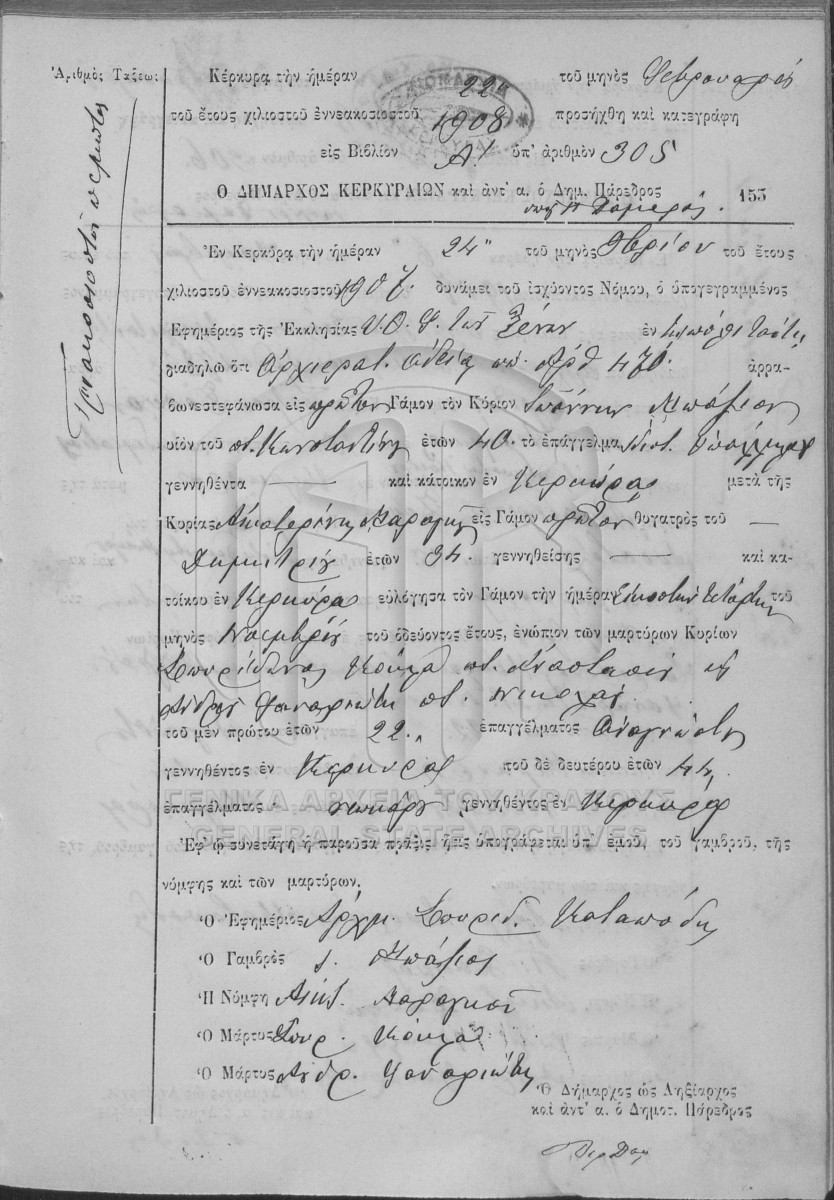 Ἀριθμὸς Τάξεως
Κέρκυρα τὴν ἡμέραν 22 τοῦ μηνὸς Φεβρουαρίου
τοῦ ἔτους χιλιοστοῦ ἐννεακοσιοστοῦ 1908 προσήχθη καὶ κατεγράφη
εἰς Βιβλίον Α! ὑπ' ἀριθμὸν 305
Ὁ ΔΗΜΑΡΧΟΣ ΚΕΡΚΥΡΑΙΩΝ καὶ ἀντ' α. ὁ Δημ. Πάρεδρος 155
Ἐν Κερκύρᾳ τὴν ἡμέραν 24 τοῦ μηνὸς 9βρίου τοῦ ἔτους
χιλιοστοῦ ἐννεακοσιοστοῦ 1907. δυνάμει τοῦ ἰσχύοντος Νόμου, ὁ ὑπογεγραμμένος
Ἐφημέριος τῆς Ἐκκλησίας Υ. Θ. τῶν Ξένων ἐν
διαδηλῶ ὅτι Ἀρχιερατ. ἀδείᾳ ὑπ. ἀρθ 470. ἀρρα-
βωνεστεφάνωσα εἰς πρῶτον Γάμον τὸν Κύριον Ἰωάννην Μπάμιον
υἱὸν τοῦ π. Κωνσταντίνου ἐτῶν 40. τὸ ἐπάγγελμα
γεννηθέντα — καὶ κάτοικον ἐν Κερκύρᾳ μετὰ τῆς
Κυρίας Αἰκατερίνης εἰς Γάμον πρῶτον θυγατρὸς τοῦ —
Δημητρίου ἐτῶν 34. γεννηθείσης — καὶ κα-
τοίκου ἐν Κερκύρᾳ εὐλόγησα τὸν Γάμον τὴν ἡμέραν Εἰκοστὴν τετάρτην τοῦ
μηνὸς Νοεμβρίου τοῦ ὁδεύοντος ἔτους, ἐνώπιον τῶν μαρτύρων Κυρίων
Σπυρίδωνος Κόκλα π. Ἀναστασίου καὶ
Ἀνδρέου Φαναριώτη π. Νικολάου
τοῦ μὲν πρώτου ἐτῶν 22. ἐπαγγέλματος Ἀναγνώστη
γεννηθέντος ἐν Κερκύρᾳ τοῦ δὲ δευτέρου ἐτῶν 44
ἐπαγγέλματος γεννηθέντος ἐν Κερκύρᾳ
ΓΕΝΙΚΑ ΑΡΧΕΙΑ ΤΟΥ ΚΡΑΤΟΥΣ
GENERAL STATE ARCHIVES
Ἐφ' ᾧ συνετάγη ἡ παροῦσα πρᾶξις ἥτις ὑπογράφεται ὑπ' ἐμοῦ, τοῦ γαμβροῦ, τῆς
νύμφης καὶ τῶν μαρτύρων.
Ὁ Ἐφημέριος Ἀρχιμ. Σπυρίδ. Καταπόδης
Ὁ Γαμβρὸς Ι. Μπάμιος
Ἡ Νύμφη Αἰκ.
Ὁ Μάρτυς Σπυρ. Κόκλα
Ὁ Μάρτυς Ἀνδρ. Φαναριώτης
Ὁ Δήμαρχος ὡς Ληξίαρχος
καὶ ἀντ' α. ὁ Δημοτ. Πάρεδρος